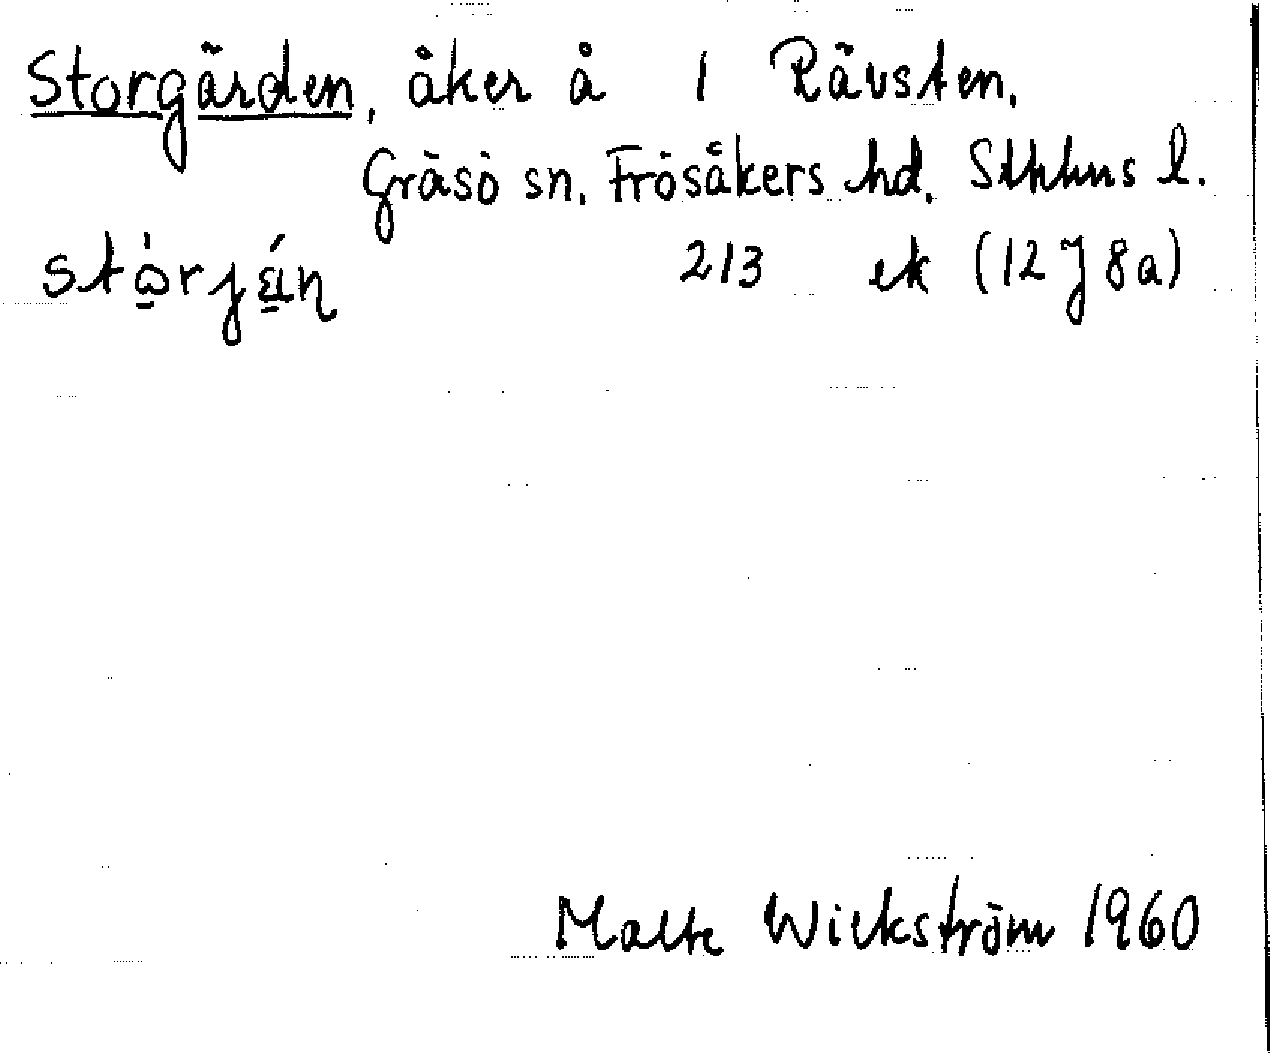 Storgärden, åker å 1 Rävsten.
Gräsö sn. Frösåkers hd. Sthlms l.
213 ek (12 J 8a)
Malte Wickström 1960